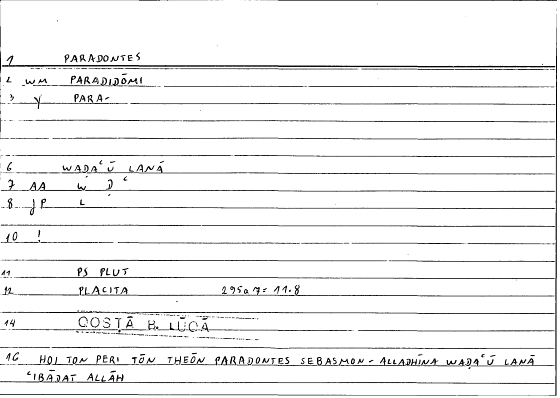 1 PARADONTES
2 WM PARADIDŌMI
3 Y PARA-
6 WAḌAʿŪ LANĀ
7 AA W Ḍ ʿ
8 JP L
10 !
11 PS PLUT
12 PLACITA 295a7= 11.8
14 QOSṬĀ B. LŪQĀ
16 HOI TON PERI TŌN THEŌN PARADONTES SEBASMON - ALLADHĪNA WAḌAʿŪ LANĀ
ʿIBĀDAT ALLĀH